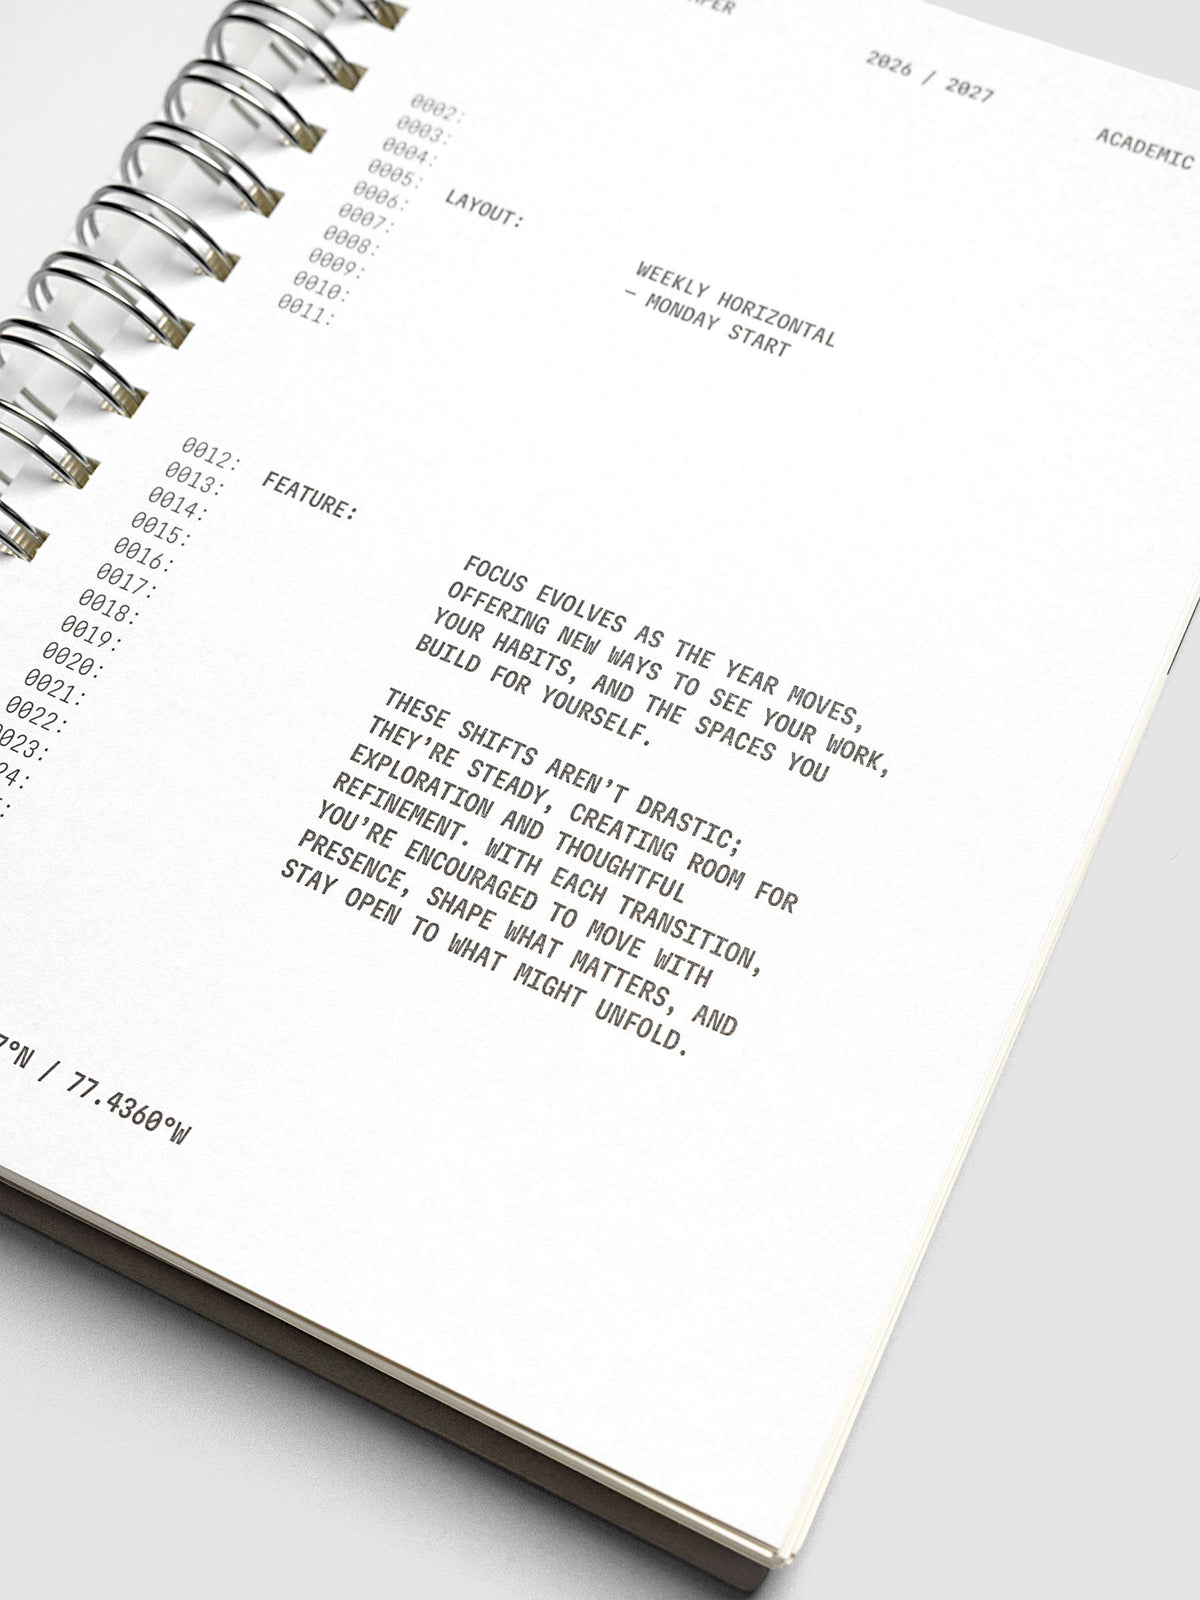 2026 / 2027
ACADEMIC
0002:
0003:
0004:
0005:
LAYOUT:
0006:
0007:
0008:
0009:
0010:
0011:
WEEKLY HORIZONTAL
– MONDAY START
0012:
0013:
FEATURE:
0014:
0015:
0016:
0017:
0018:
0019:
0020:
0021:
0022:
FOCUS EVOLVES AS THE YEAR MOVES,
OFFERING NEW WAYS TO SEE YOUR WORK,
YOUR HABITS, AND THE SPACES YOU
BUILD FOR YOURSELF.
THESE SHIFTS AREN’T DRASTIC;
THEY’RE STEADY, CREATING ROOM FOR
EXPLORATION AND THOUGHTFUL
REFINEMENT. WITH EACH TRANSITION,
YOU’RE ENCOURAGED TO MOVE WITH
PRESENCE, SHAPE WHAT MATTERS, AND
STAY OPEN TO WHAT MIGHT UNFOLD.
7°N / 77.4360°W